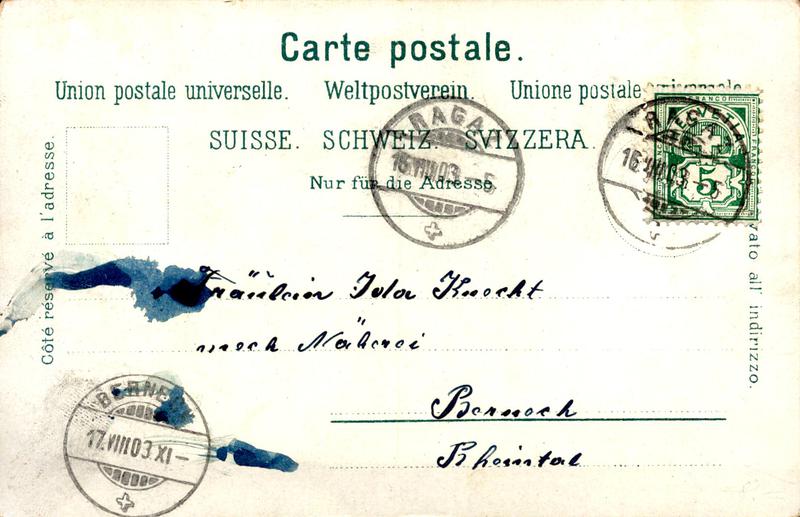 Carte postale.
Union postale universelle. Weltpostverein. Unione postale universale
SUISSE. SCHWEIZ. SVIZZERA.
Nur für die Adresse.
Côté réservé à l'adresse.
RAGAZ
16.VIII.03.–5
RAGAZ
16.VIII.03.–5
FRANCO
HELVETIA
5
vato all' indirizzo.
Fräulein Ida Knecht
mech Näherei
Berneck
Rheintal
BERNE
17.VIII.03.XI–